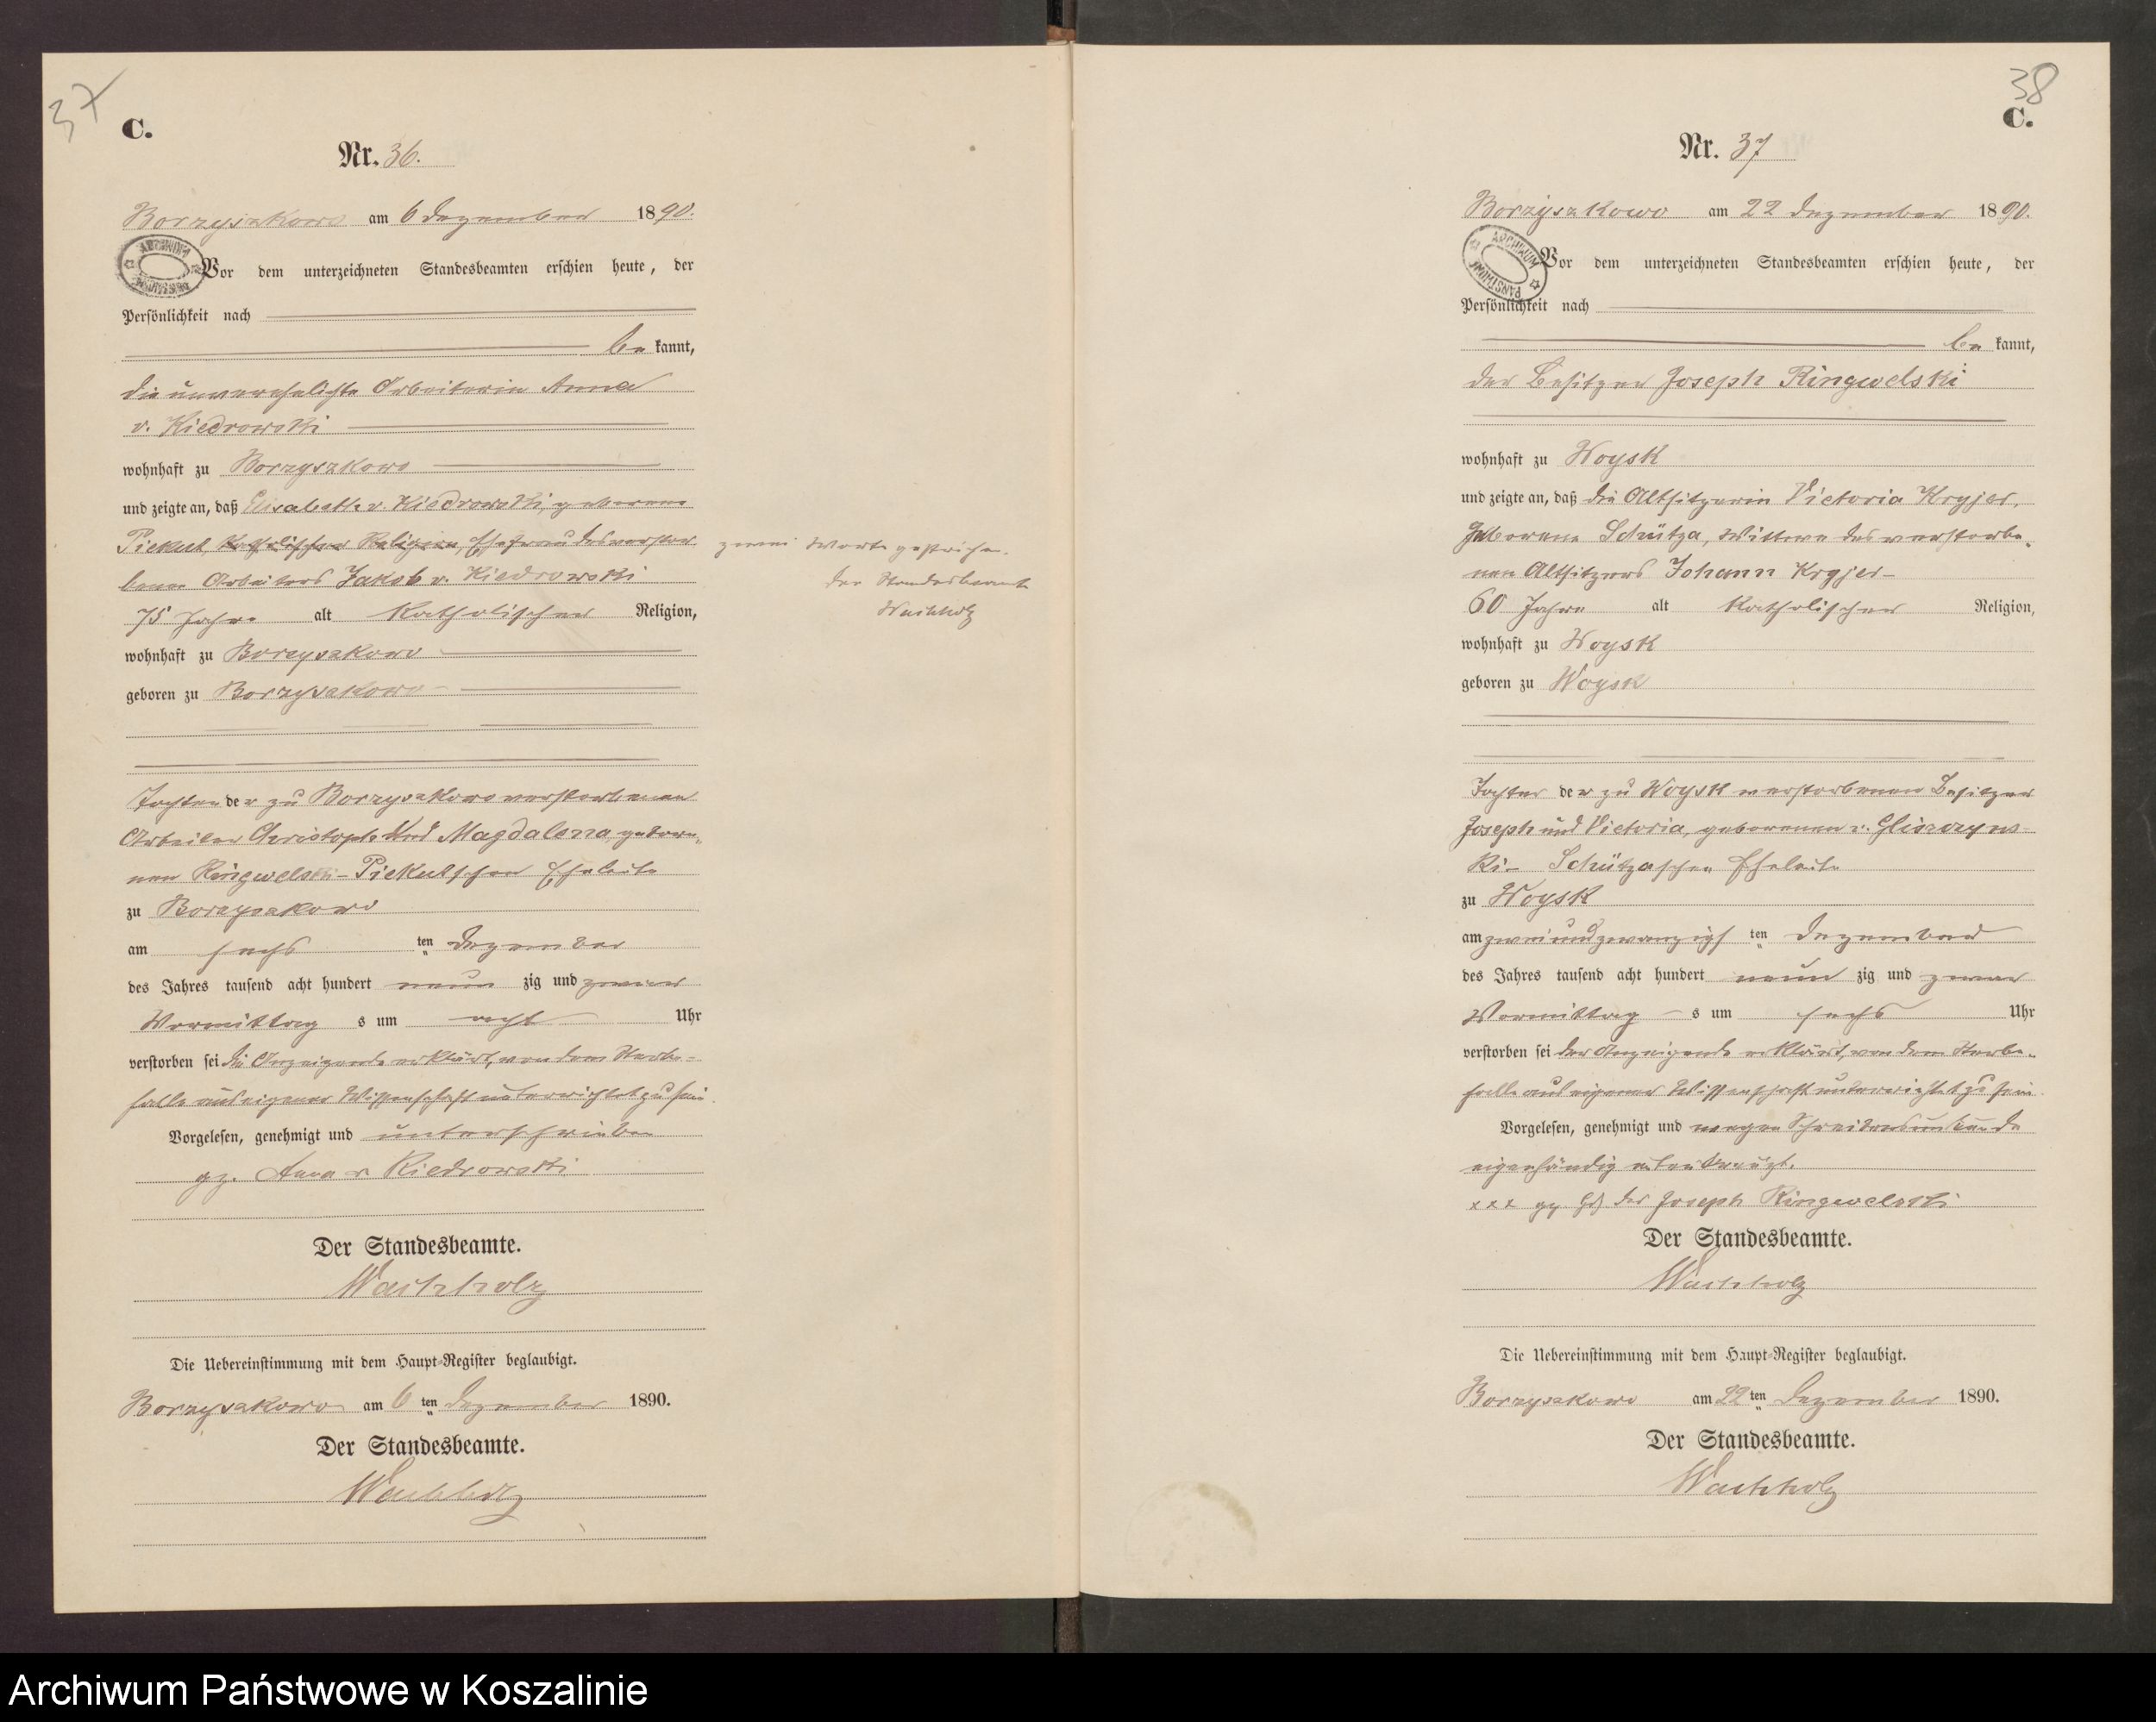 37
C.
Nr. 36.
Borzyszkowo am 6 Dezember 1890.
Vor dem unterzeichneten Standesbeamten erschien heute, der
Persönlichkeit nach
be kannt,
die unverehelichte Arbeiterin Anna
v. Kiedrowski
wohnhaft zu Borzyszkowo
und zeigte an, daß Elisabeth v. Kiedrowski, geborene
Piekut, katholischer Religion, Ehefrau des verstor
benen Arbeiters Jakob v. Kiedrowski
75 Jahre alt katholischer Religion,
wohnhaft zu Borzyszkowo
geboren zu Borzyszkowo
Tochter der zu Borzyszkowo verstorbenen
Arbeiter Christoph und Magdalena, gebore-
nen Ringwelski-Piekutschen Eheleute
zu Borzyszkowo
am sechs ten Dezember
des Jahres tausend acht hundert neun zig und zwar
Vormittag s um acht Uhr
verstorben sei die Anzeigende erklärt, von dem Sterbe-
falle aus eigener Wissenschaft unterrichtet zu sein.
Vorgelesen, genehmigt und unterschrieben
gz. Anna v. Kiedrowski
Der Standesbeamte.
Wachholz
Die Uebereinstimmung mit dem Haupt-Register beglaubigt.
Borzyszkowo am 6 ten Dezember 1890.
Der Standesbeamte.
Wachholz
zwei Worte gestrichen.
Der Standesbeamte
Wachholz
38
C.
Nr. 37
Borzyszkowo am 22 Dezember 1890.
ARCHIWUM PAŃSTWOWE
Vor dem unterzeichneten Standesbeamten erschien heute, der
Persönlichkeit nach
be kannt,
der Besitzer Joseph Ringwelski
wohnhaft zu Woysk
und zeigte an, daß die Altsitzerin Victoria Kryjer,
geborene Schütza, Wittwe des verstorbe-
nen Altsitzers Johann Kryjer-
60 Jahre alt katholischer Religion,
wohnhaft zu Woysk
geboren zu Woysk
Tochter der zu Woysk verstorbenen Besitzer
Joseph und Victoria, geborenen v. Gliszczyns-
ki- Schützaschen Eheleute
zu Woysk
am zweiundzwanzigs ten Dezember
des Jahres tausend acht hundert neun zig und zwar
Vormittag s um sechs Uhr
verstorben sei der Anzeigende erklärt, von dem Sterbe-
falle aus eigener Wissenschaft unterrichtet zu sein
Vorgelesen, genehmigt und wegen Schreibensunkunde
eigenhändig unterkreuzt.
xxx gz. Hd des Joseph Ringwelski
Der Standesbeamte.
Wachholz
Die Uebereinstimmung mit dem Haupt-Register beglaubigt.
Borzyszkowo am 22 ten Dezember 1890.
Der Standesbeamte.
Wachholz
Archiwum Państwowe w Koszalinie